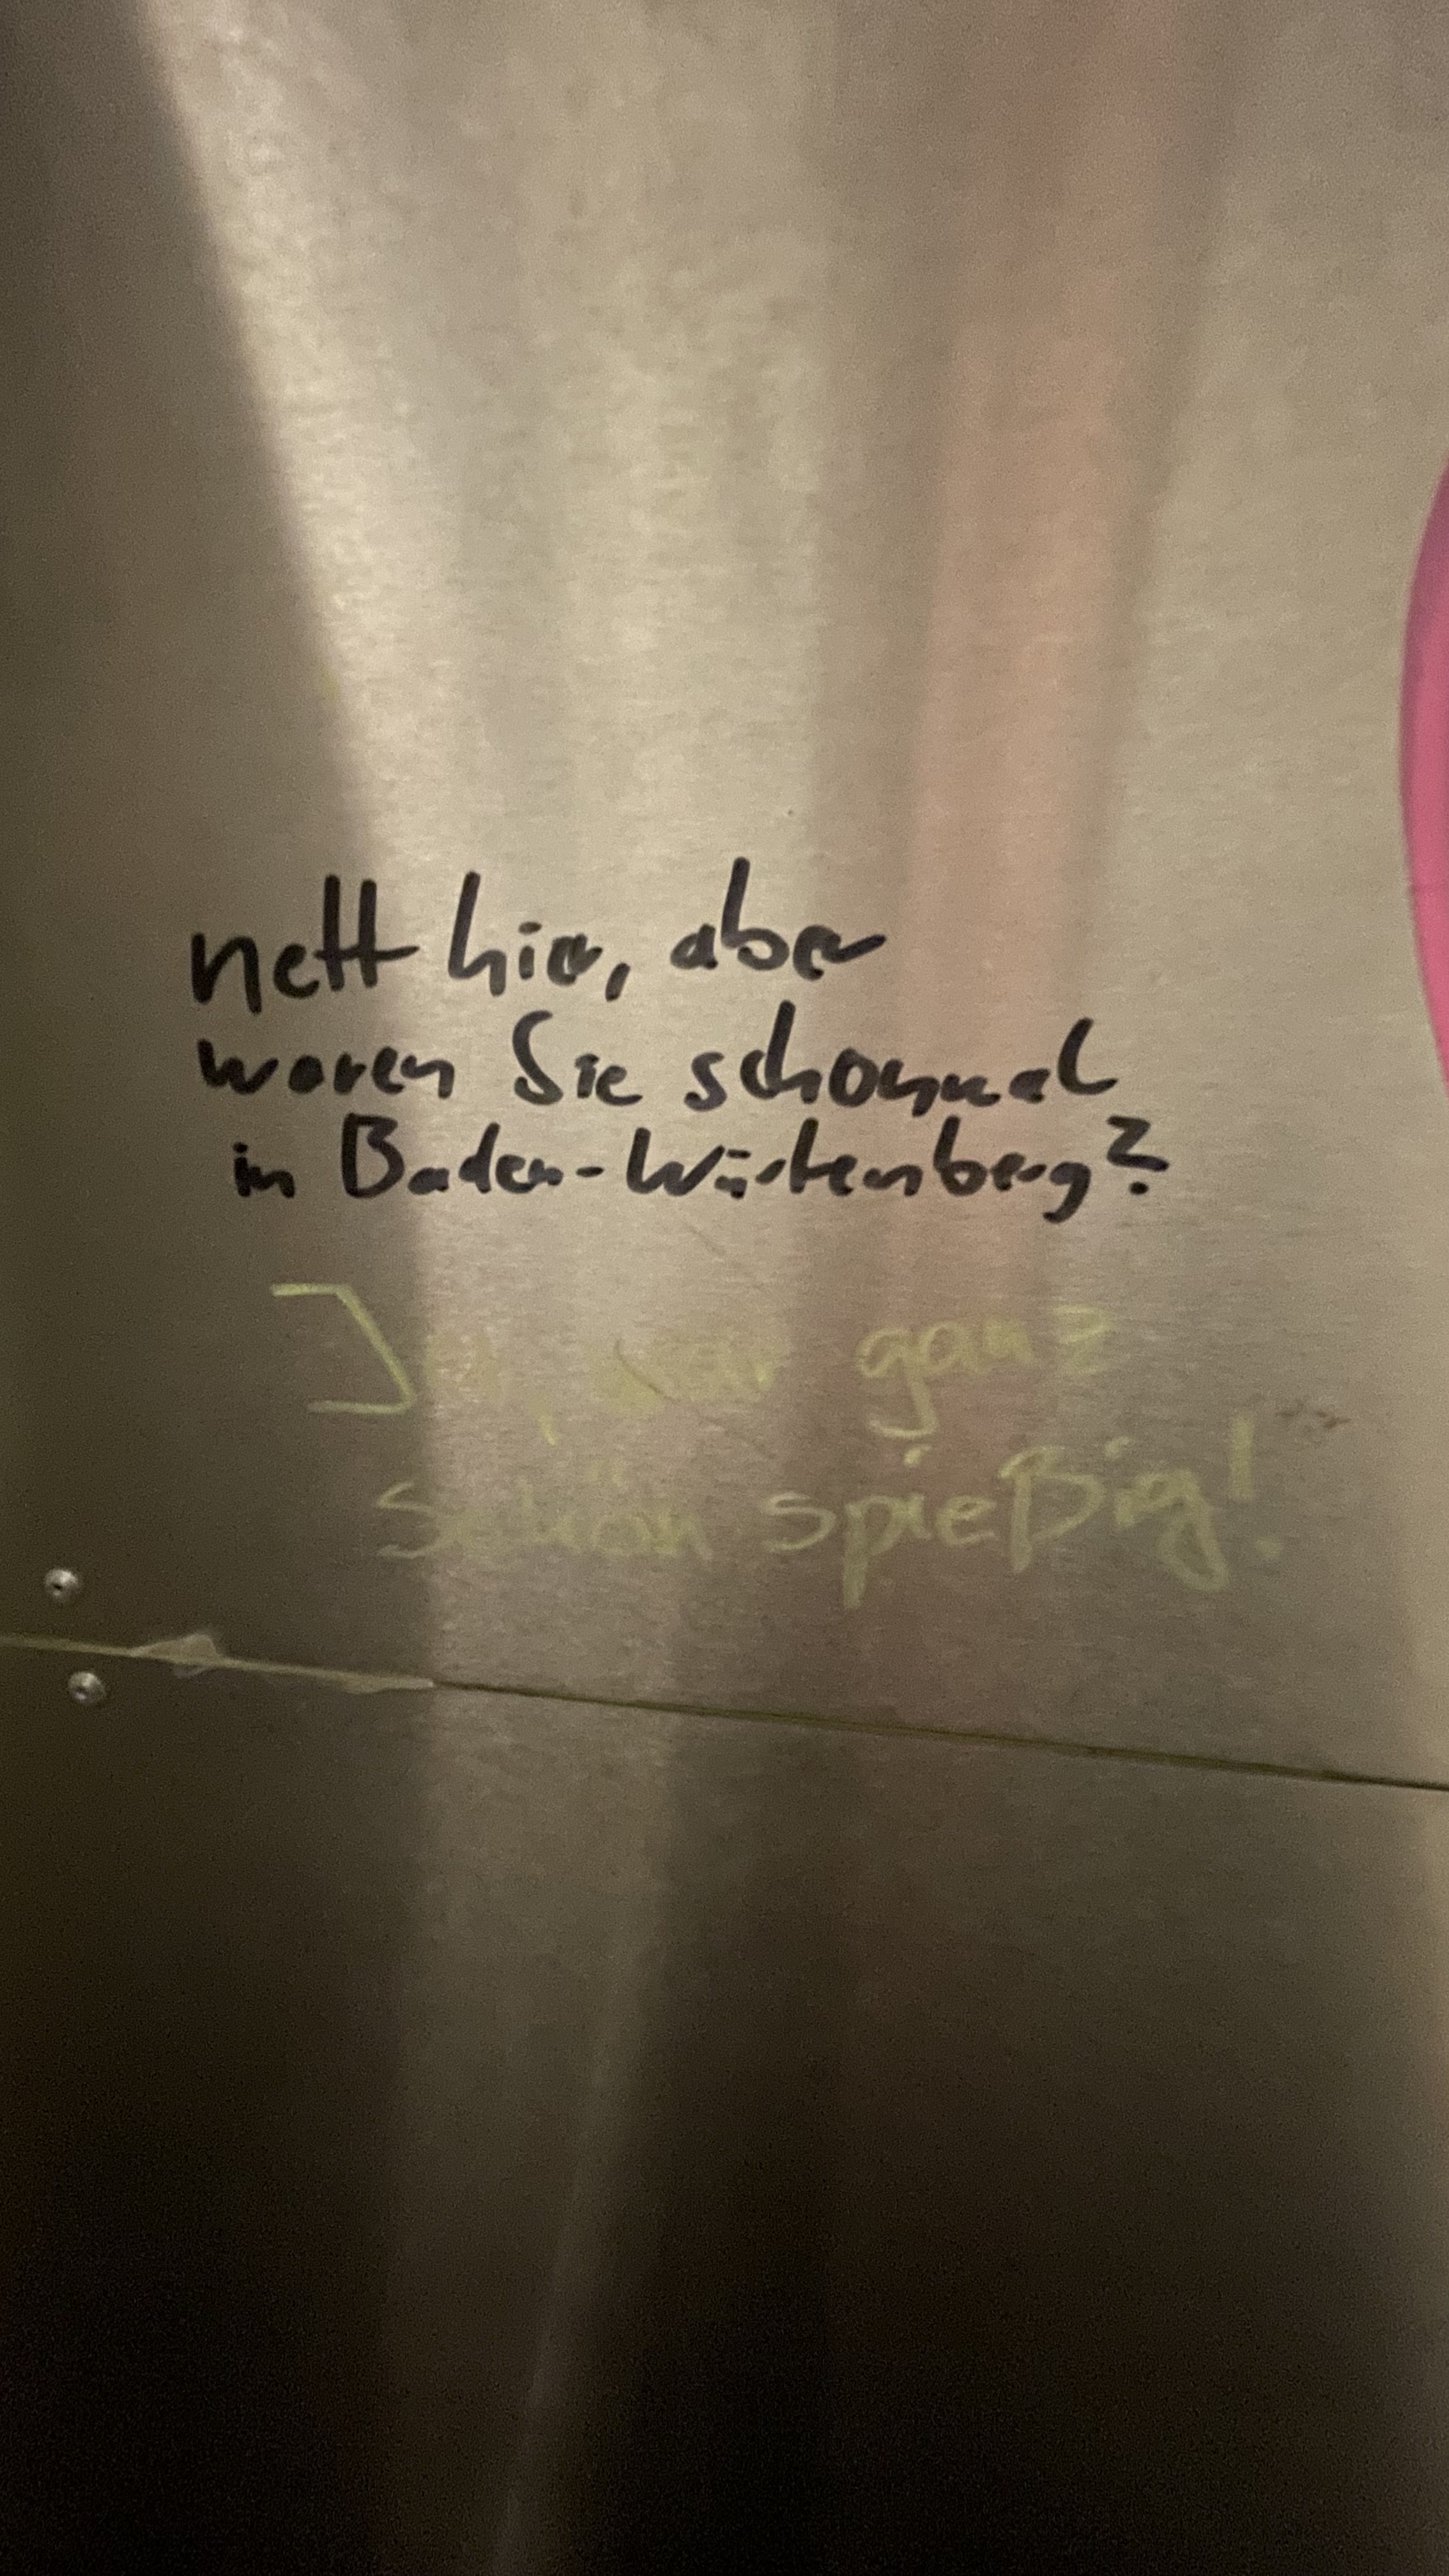 nett hier, aber
waren Sie schonmal
in Baden-Würtemberg?
Ja, war ganz
schön spießig!